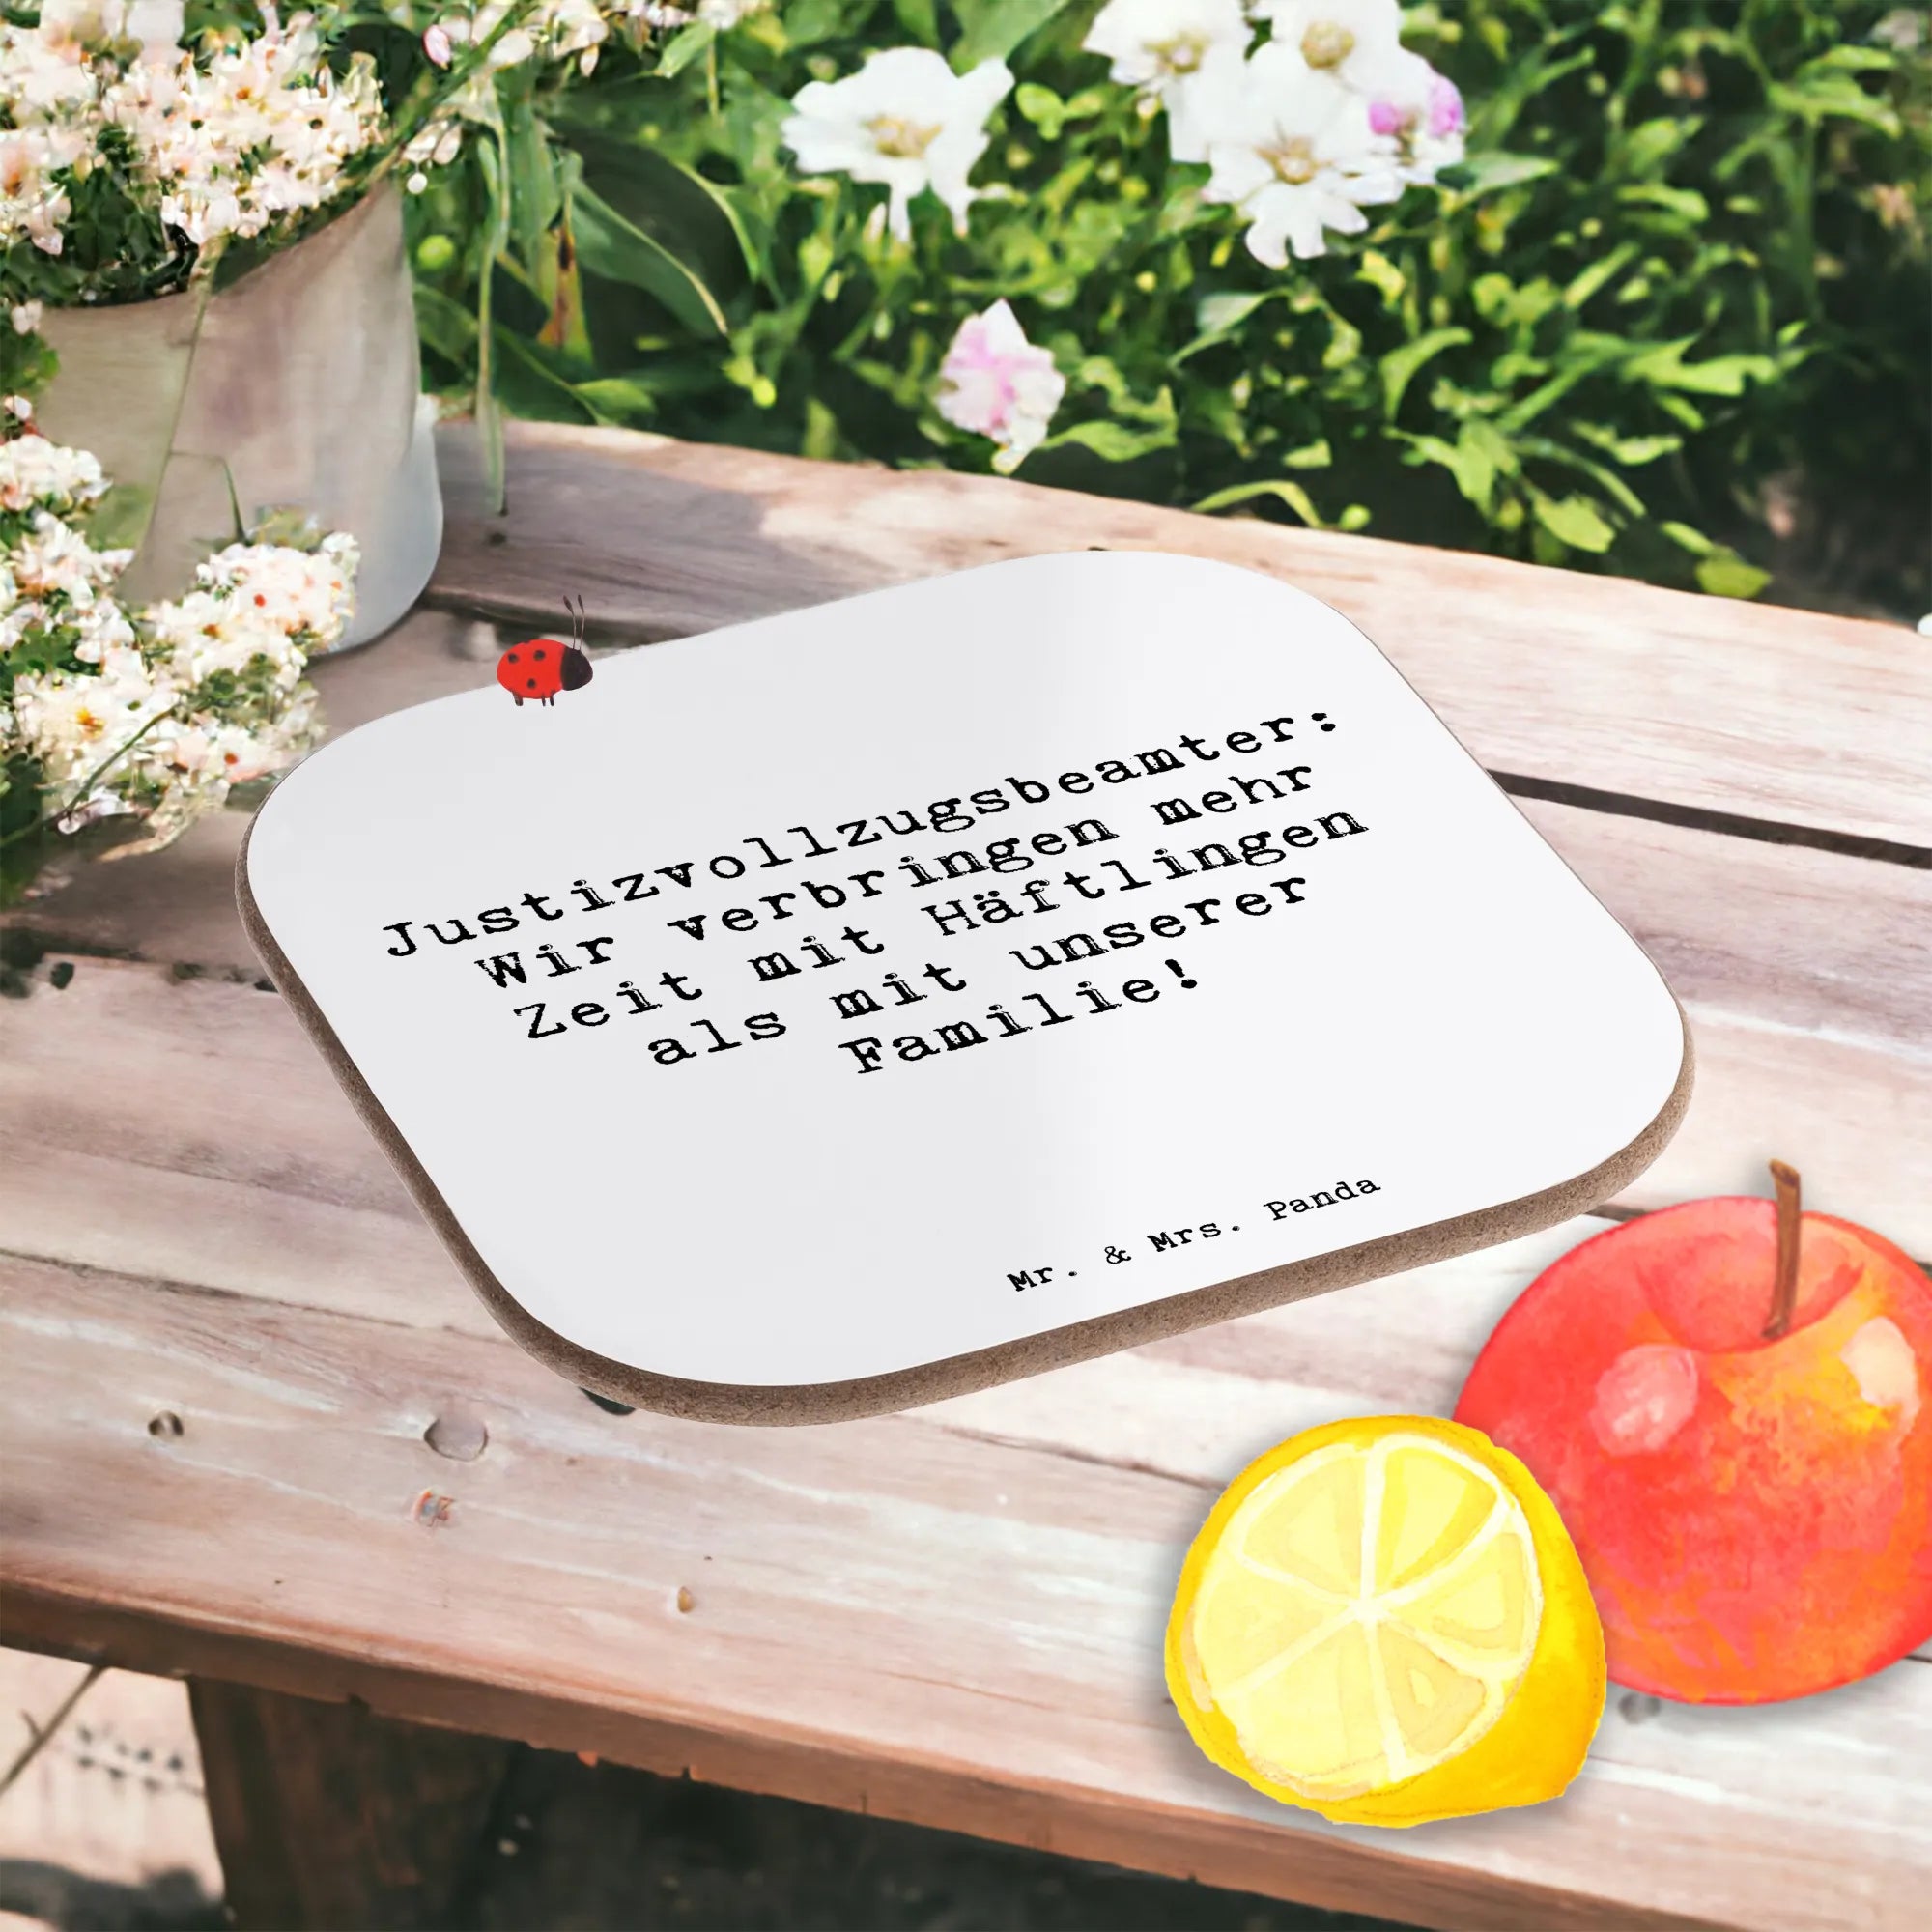 Justizvollzugsbeamter:
Wir verbringen mehr
Zeit mit Häftlingen
als mit unserer
Familie!
Mr. & Mrs. Panda